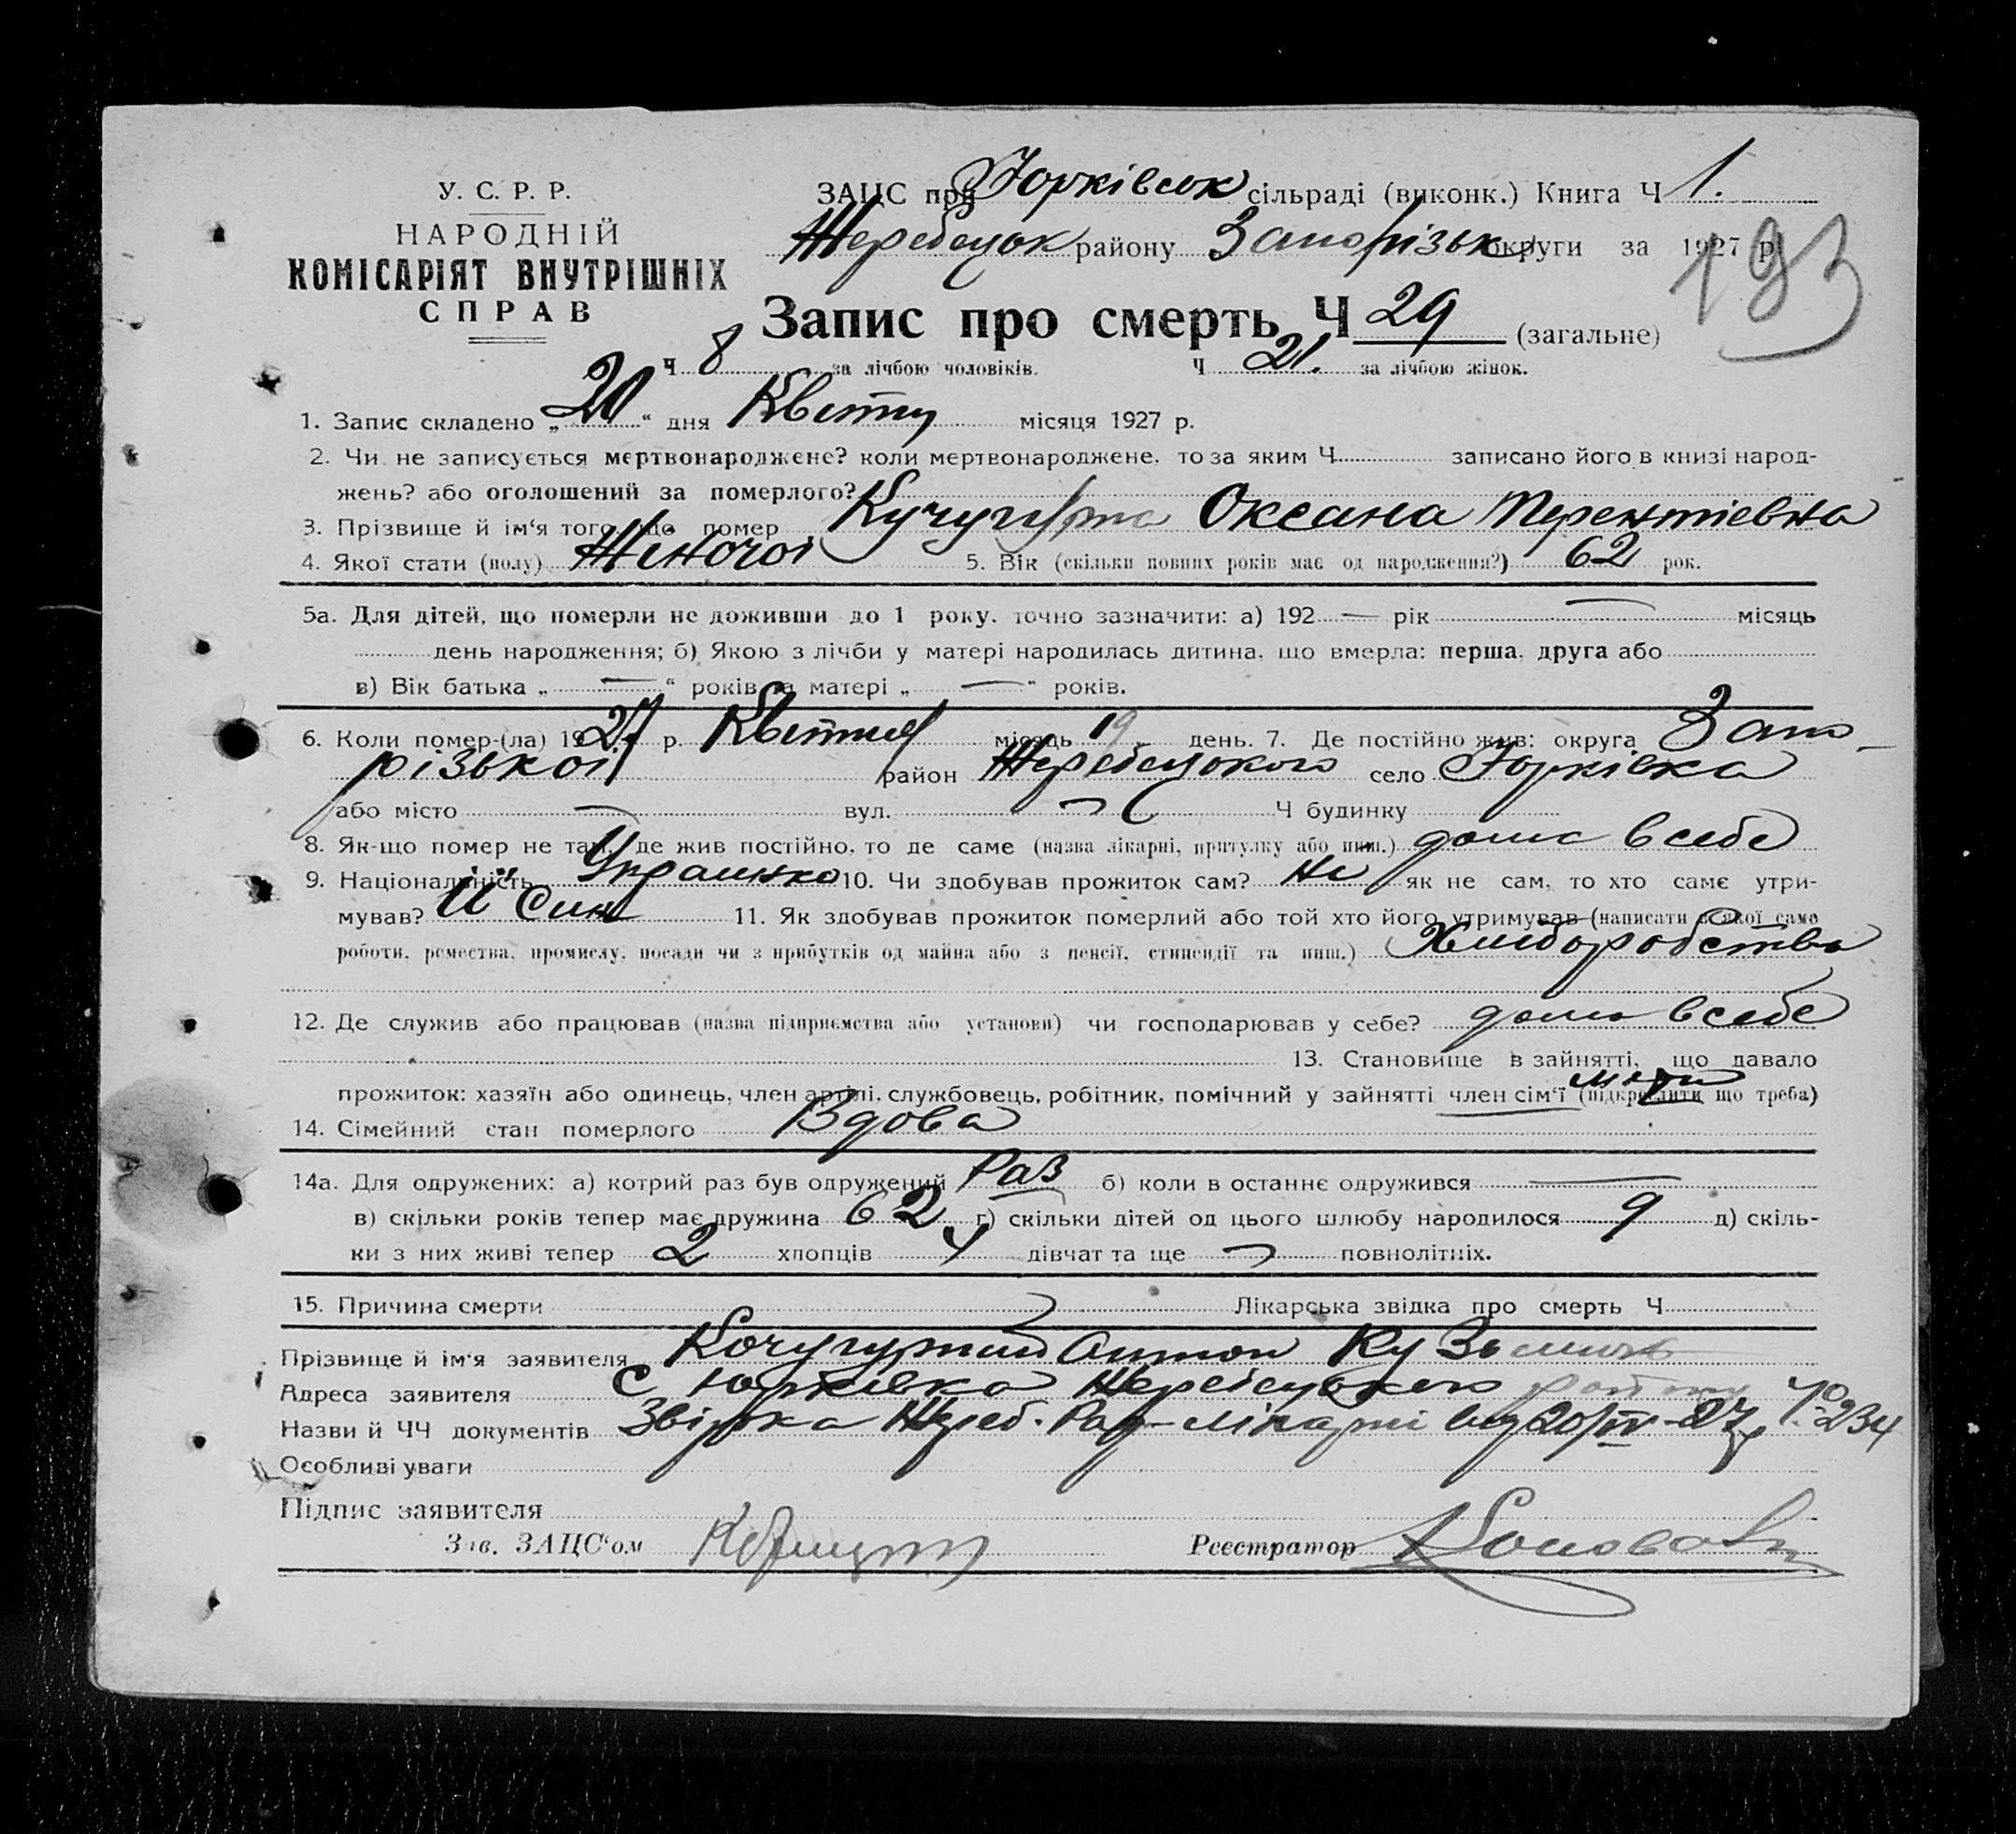 У. С. Р. Р.
НАРОДНІЙ
КОМІСАРІЯТ ВНУТРІШНІХ
СПРАВ
ЗАЦС при Юрківськ сільраді (виконк.) Книга Ч 1.
Жеребецьк району Запорізьк округи за 1927 р.
193
Запис про смерть Ч 29 (загальне)
Ч 8 за лічбою чоловіків. Ч 21. за лічбою жінок.
1. Запис складено „ 20 “ дня Квітня місяця 1927 р.
2. Чи не записується мертвонароджене? коли мертвонароджене, то за яким Ч записано його в книзі народ-
жень? або оголошений за померлого?
3. Прізвище й ім'я того, що помер Оксана Терентіевна
4. Якої стати (полу) Жіночої 5. Вік (скільки повних років має од народження?) 62 рок.
5а. Для дітей, що померли не доживши до 1 року, точно зазначити: а) 192 — рік — місяць
день народження; б) Якою з лічби у матері народилась дитина, що вмерла: перша, друга або
в) Вік батька „ — “ років та матері „ — “ років.
6. Коли помер-(ла) 1927 р. Квітня місяць 19 день. 7. Де постійно жив: округа Запо-
різької район Жеребецького село Юрківка
або місто — вул. Ч будинку
8. Як-що помер не там, де жив постійно, то де саме (назва лікарні, притулку або инш.) дома в себе
9. Національність Українка 10. Чи здобував прожиток сам? Ні як не сам, то хто саме утри-
мував? її Син 11. Як здобував прожиток померлий або той хто його утримував (написати з якої само
роботи, ремества, промислу, посади чи з прибутків од майна або з пенсії, стипендії та инш.) Хліборобство
12. Де служив або працював (назва підприємства або установи) чи господарював у себе? дома в себе
13. Становище в зайнятті, що давало
мати
прожиток: хазяїн або одинець, член артілі, службовець, робітник, помічний у зайнятті член сім'ї (підкреслити що треба)
14. Сімейний стан померлого Вдова
14а. Для одружених: а) котрий раз був одружений Раз б) коли в останнє одружився —
в) скільки років тепер має дружина 62 г) скільки дітей од цього шлюбу народилося 9 д) скіль-
ки з них живі тепер 2 хлопців 4 дівчат та ще — повнолітніх.
15. Причина смерти Лікарська звідка про смерть Ч
Прізвище й ім'я заявителя Кочугурний Антон Кузьмич
Адреса заявителя с Юрківка Жеребецького району
Назви й ЧЧ документів Жереб. Рай-лікарні від 20/IV-27р. Ч-234
Особливі уваги
Підпис заявителя
Зав. ЗАЦС'ом
Реєстратор